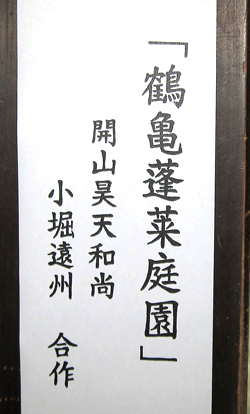 「鶴亀蓬莱庭園」
開山昊天和尚
小堀遠州 合作